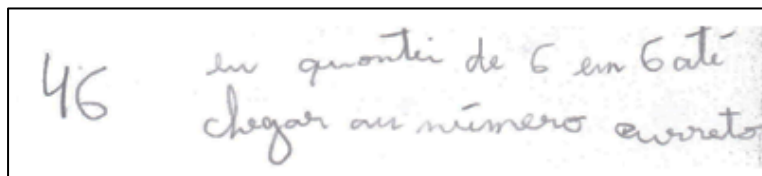 46 eu quontei de 6 em 6 até
chegar au número curreto